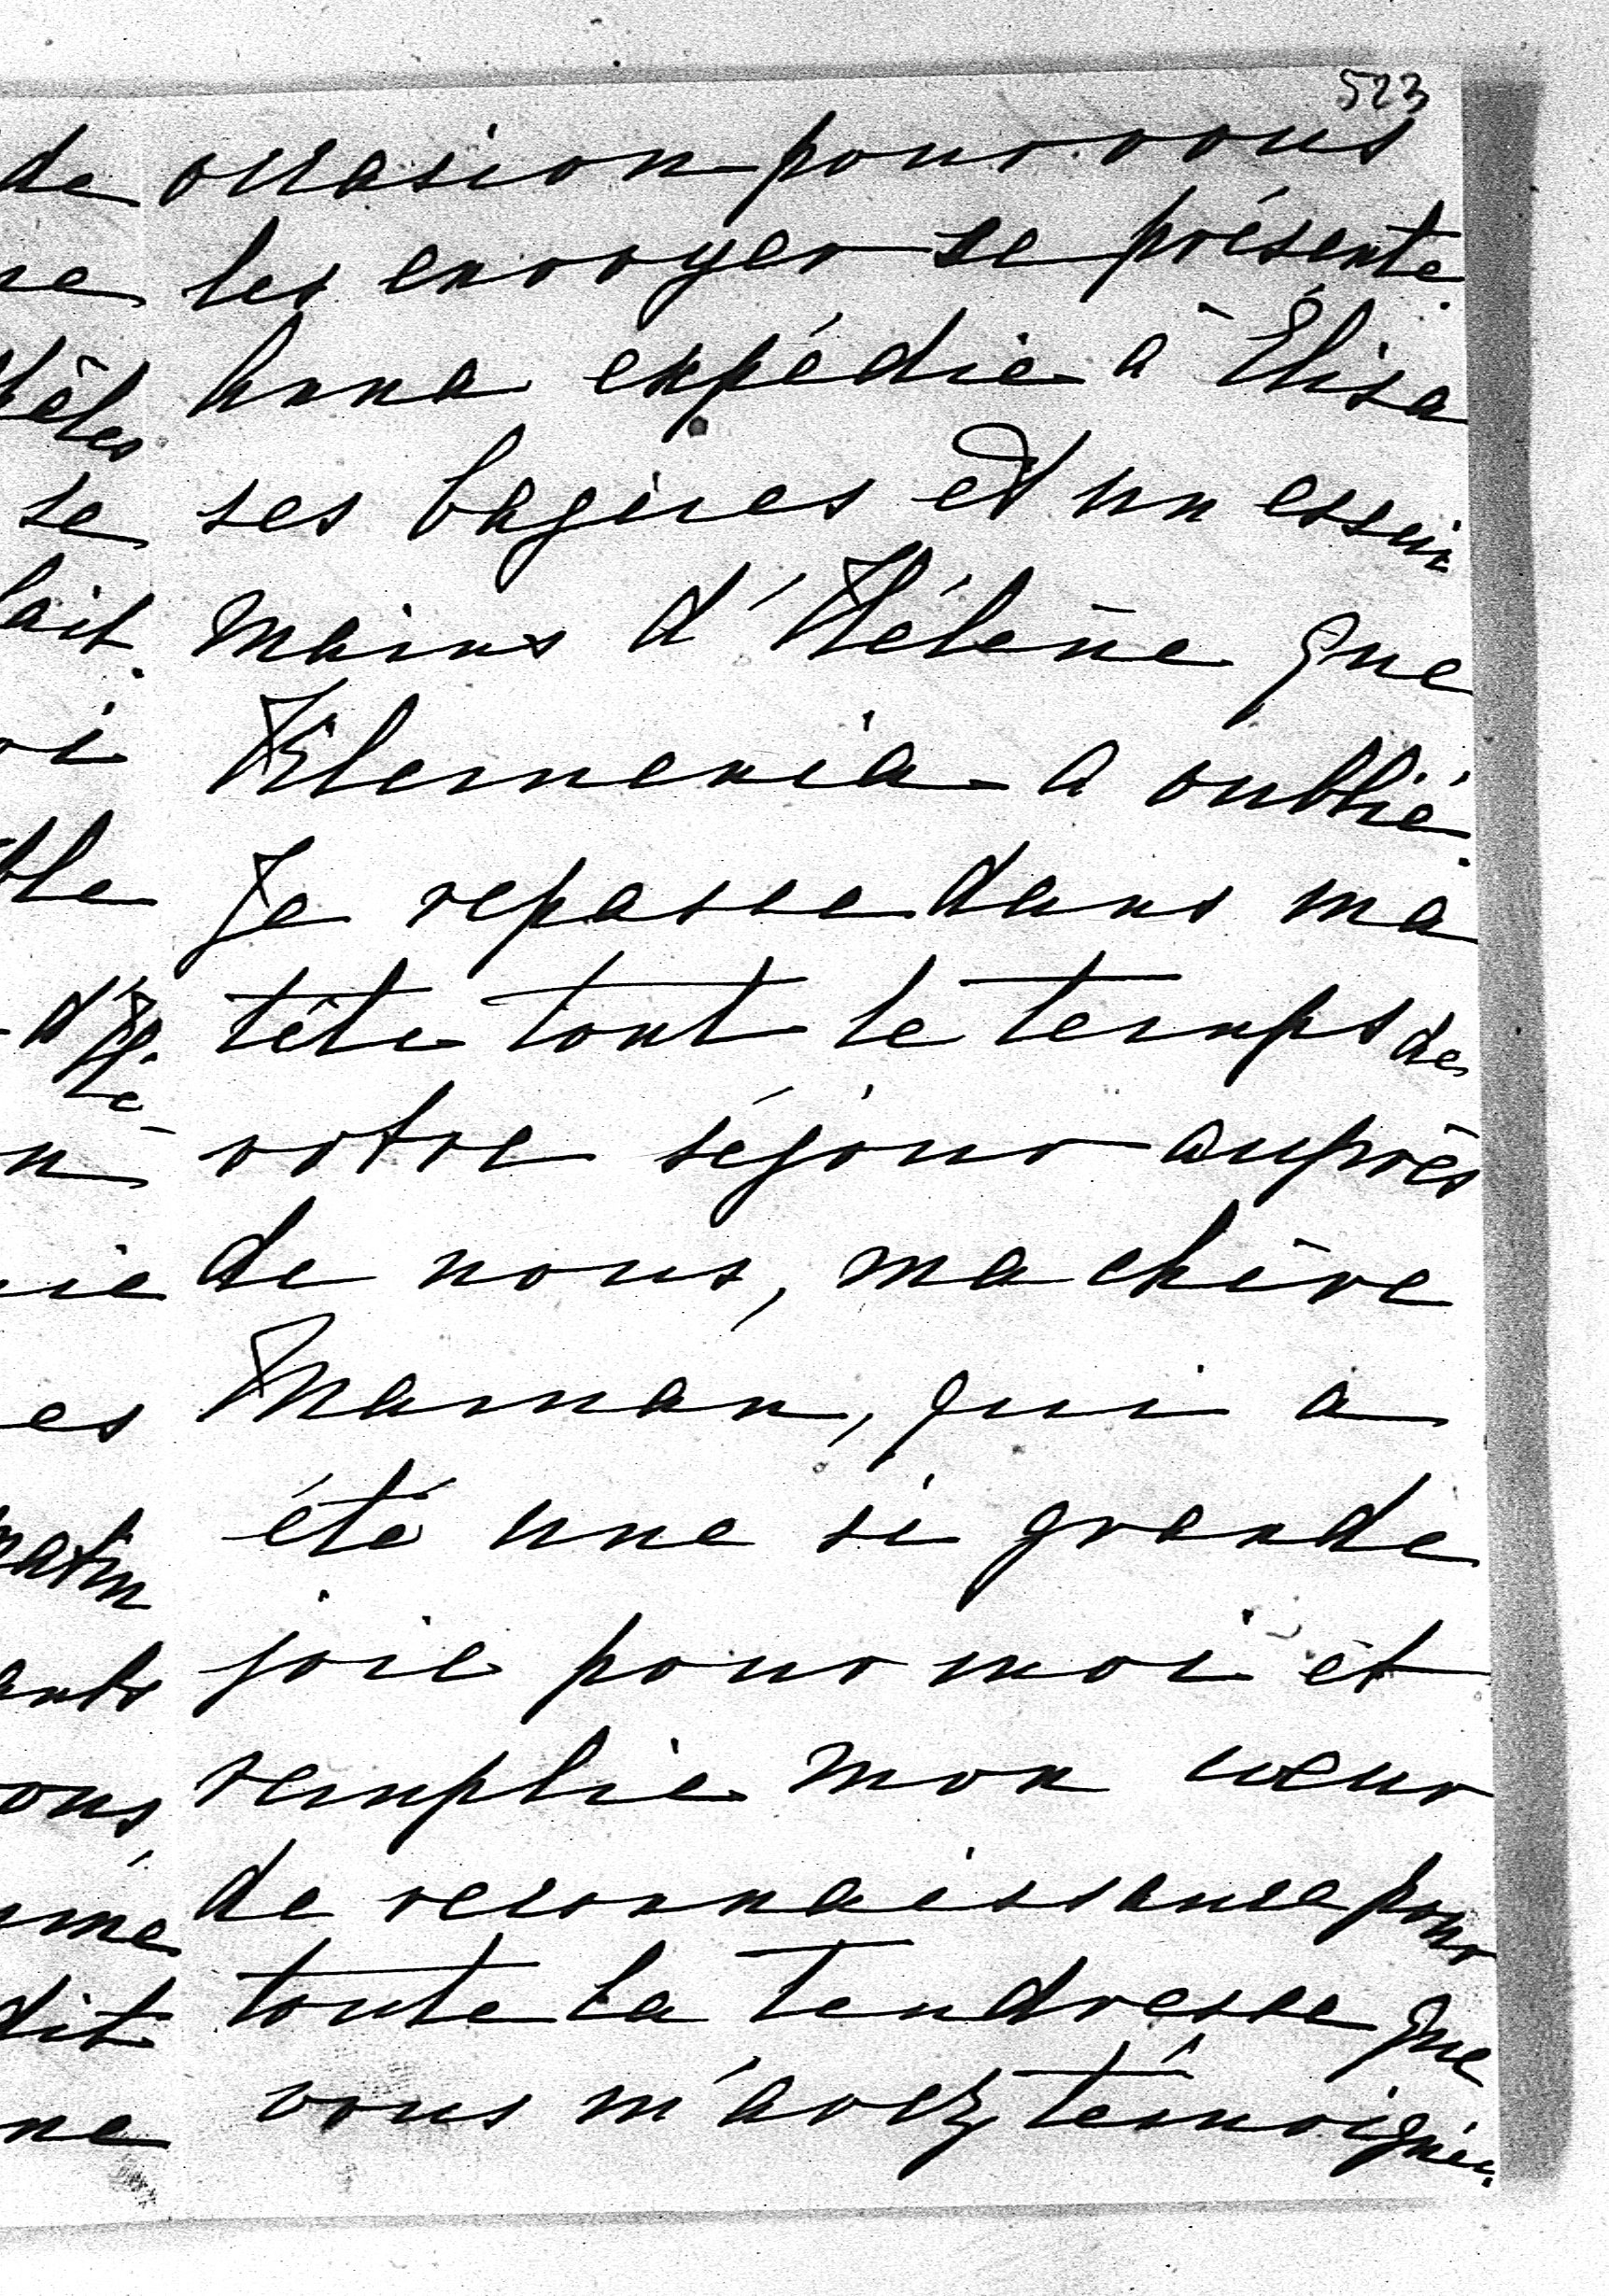 523
de occasion pour vous
ne les envoyer se présente.
Anna expédie à Élisa
se ses et un essuie
lait. mains d'Hélène que
oi Klemenia a oublié.
ble Je repasse dans ma
tête tout le temps de
n votre séjour auprès
ie de nous, ma chère
es Maman, qui a
matin été une si grande
ants joie pour moi et
ous, remplie mon cœur
de reconnaissance pour
dit toute la tendresse que
ne vous m'avez témoignée.